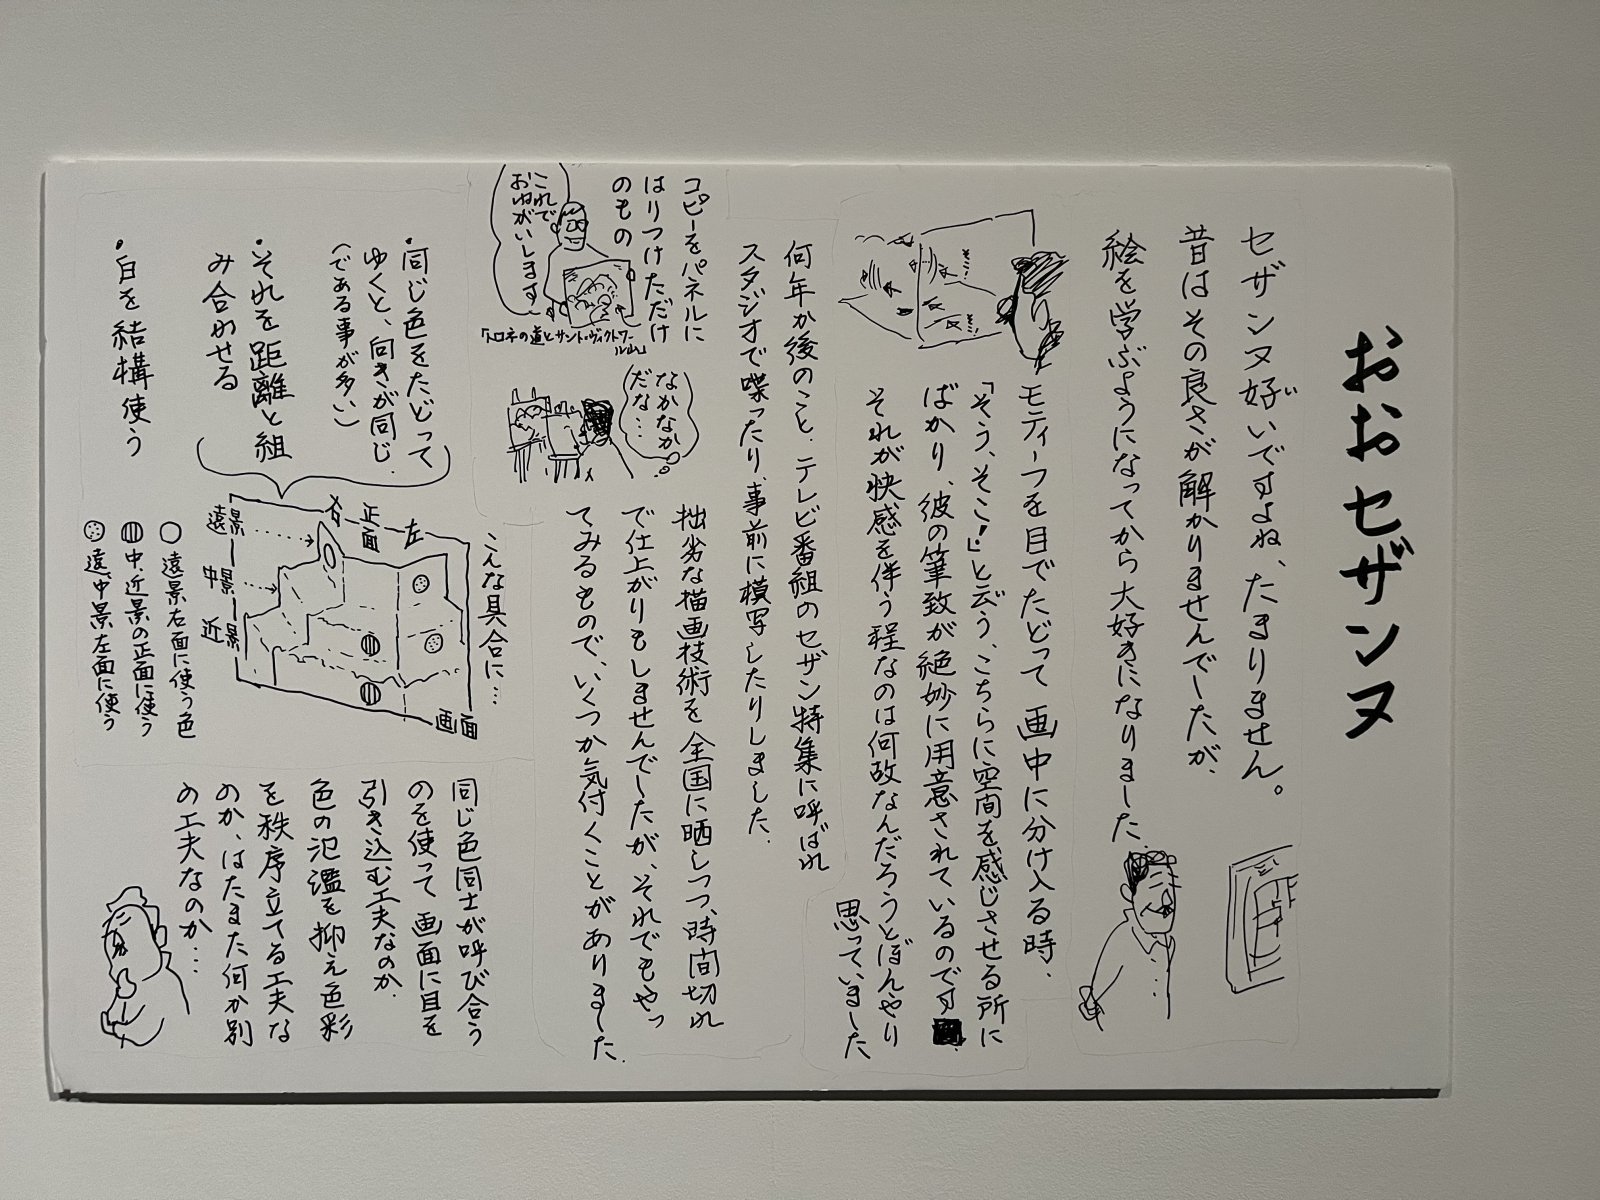 おお セザンヌ
セザンヌ好いですよね、たまりません。
昔はその良さが解かりませんでしたが、
絵を学ぶようになってから大好きになりました.
モティーフを目でたどって 画中に分け入る時、
「そう、そこ!」と云う、こちらに空間を感じさせる所に
ばかり、彼の筆致が絶妙に用意されているのです.
それが快感を伴う程なのは何故なんだろうとぼんやり
思っていました
何年か後のこと、テレビ番組のセザンヌ特集に呼ばれ
スタジオで喋ったり、事前に模写したりしました.
コピーをパネルに
はりつけただけ
のもの
これで
おねがいします
「トロネの道とサント・ヴィクトワー
ル山」
なかなか
だな…
拙劣な描画技術を 全国に晒しつつ、時間切れ
で仕上がりもしませんでしたが、それでもやっ
てみるもので、いくつか気付くことがありました.
・同じ色をたどって
ゆくと、向きが同じ.
(である事が多い)
・それを距離と組
み合わせる
・白を結構使う
こんな具合に…
右 正面 左
遠景
中景
近景
画面
遠景右面に使う色
中、近景の正面に使う
遠、中景左面に使う
同じ色同士が呼び合う
のを使って 画面に目を
引き込む工夫なのか.
色の氾濫を抑え色彩
を秩序立てる工夫な
のか、はたまた何か別
の工夫なのか…